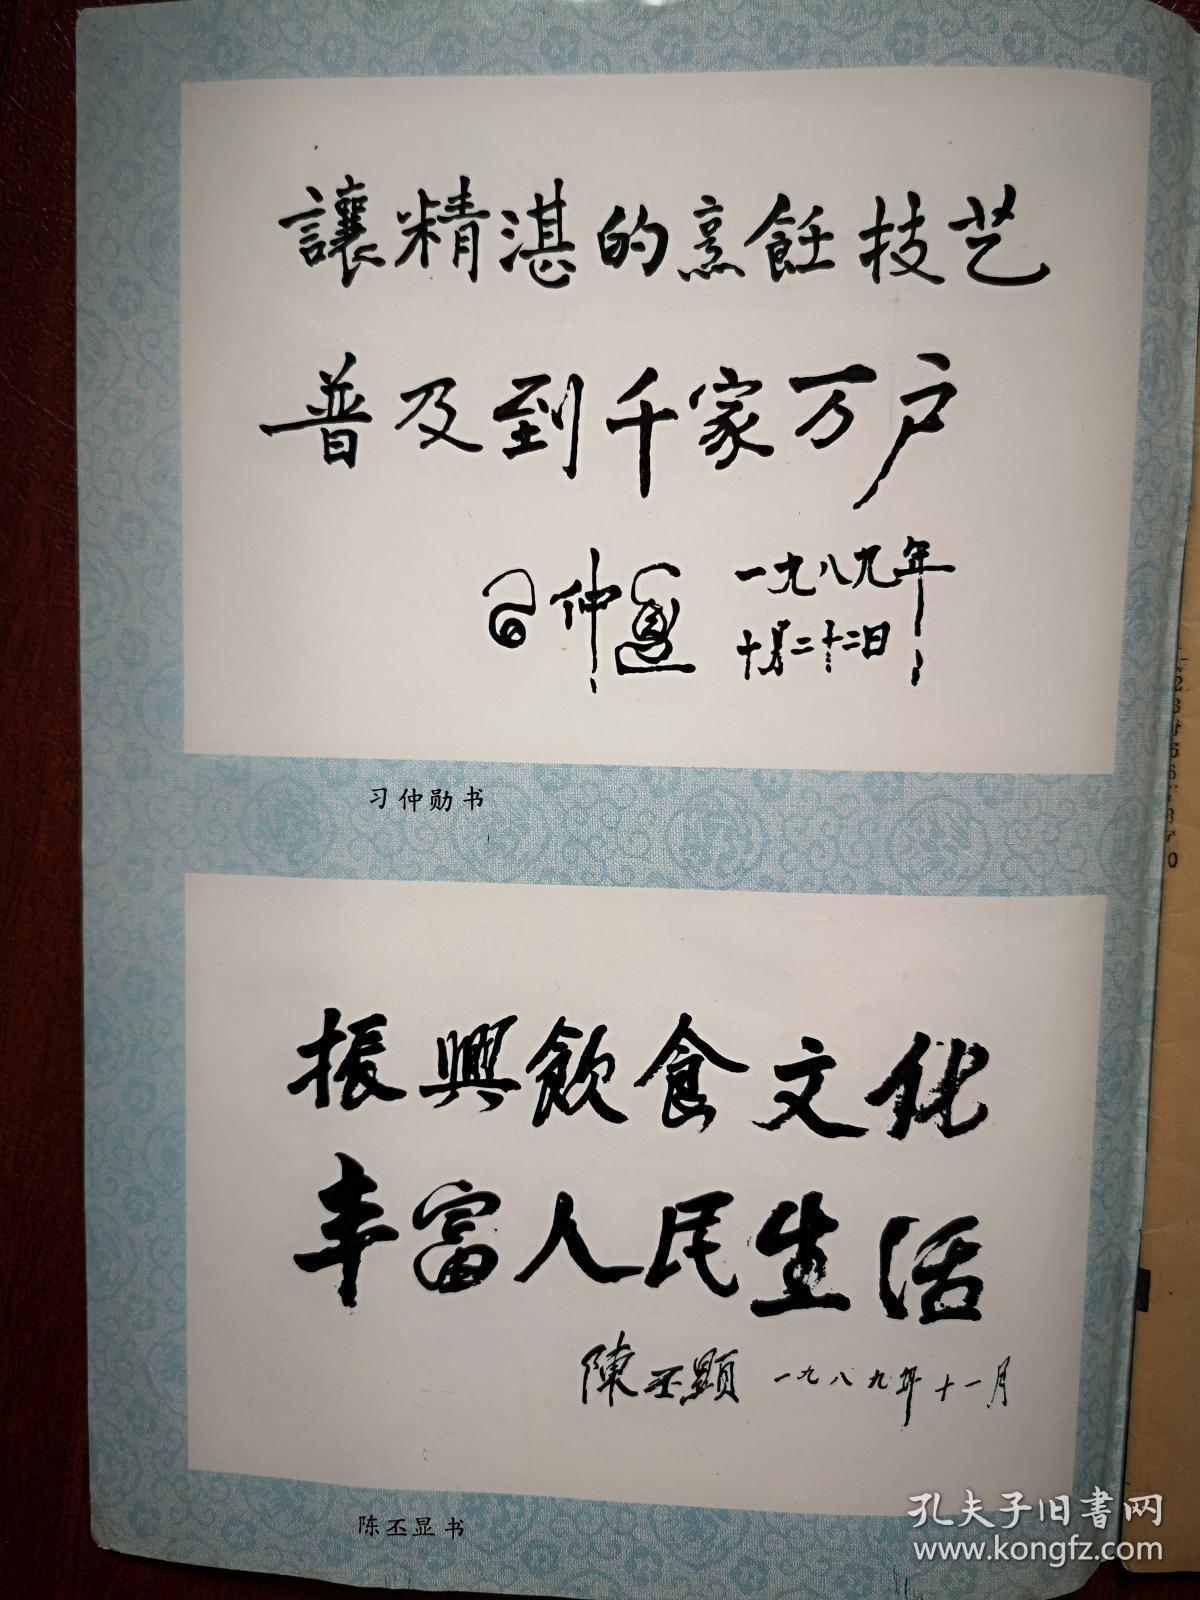 讓精湛的烹飪技艺
普及到千家万户
习仲勋 一九八九年
十月二十二日
习仲勋书
振興飲食文化
丰富人民生活
陳丕顯 一九八九年十一月
陈丕显书
孔夫子旧書网
www.kongfz.com